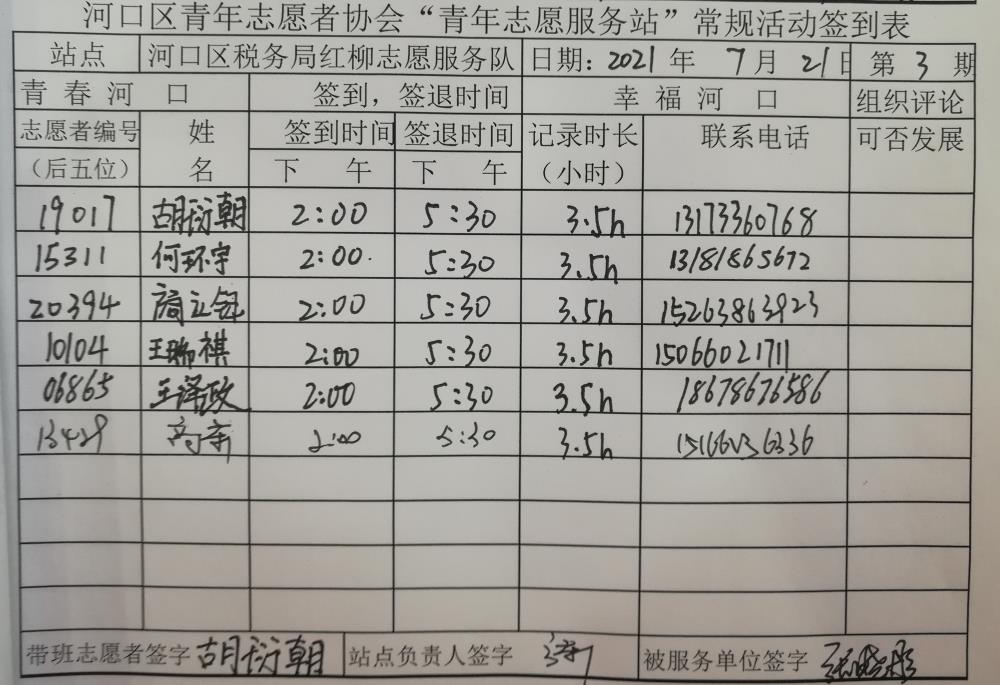 河口区青年志愿者协会“青年志愿服务站”常规活动签到表
站点 河口区税务局红柳志愿服务队 日期：2021年 7月 21日 第 3 期
青春河口 签到，签退时间 幸福河口 组织评论
志愿者编号 姓 签到时间 签退时间 记录时长 联系电话 可否发展
（后五位） 名 下午 下午 （小时）
19017 胡衍朝 2:00 5:30 3.5h 13173360768
15311 何环宇 2:00 5:30 3.5h 13181865672
20394 2:00 5:30 3.5h 15263863923
10104 王瑞祺 2:00 5:30 3.5h 15066021711
06865 王泽政 2:00 5:30 3.5h 18678676586
13429 2:00 5:30 3.5h
带班志愿者签字 胡衍朝 站点负责人签字 被服务单位签字